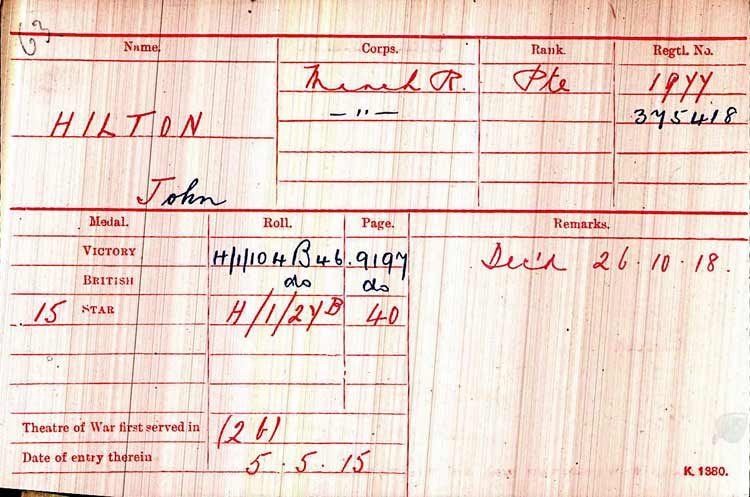 63
Name. Corps. Rank. Regtl. No.
Manch R. Pte 1977
HILTON —"— 375418
John
Medal. Roll. Page. Remarks.
VICTORY H/1/104 B46 9197 Dec'd 26.10.18.
BRITISH do do
15 STAR H/1/27B 40
Theatre of War first served in (2b)
Date of entry therein 5.5.15
K. 1380.